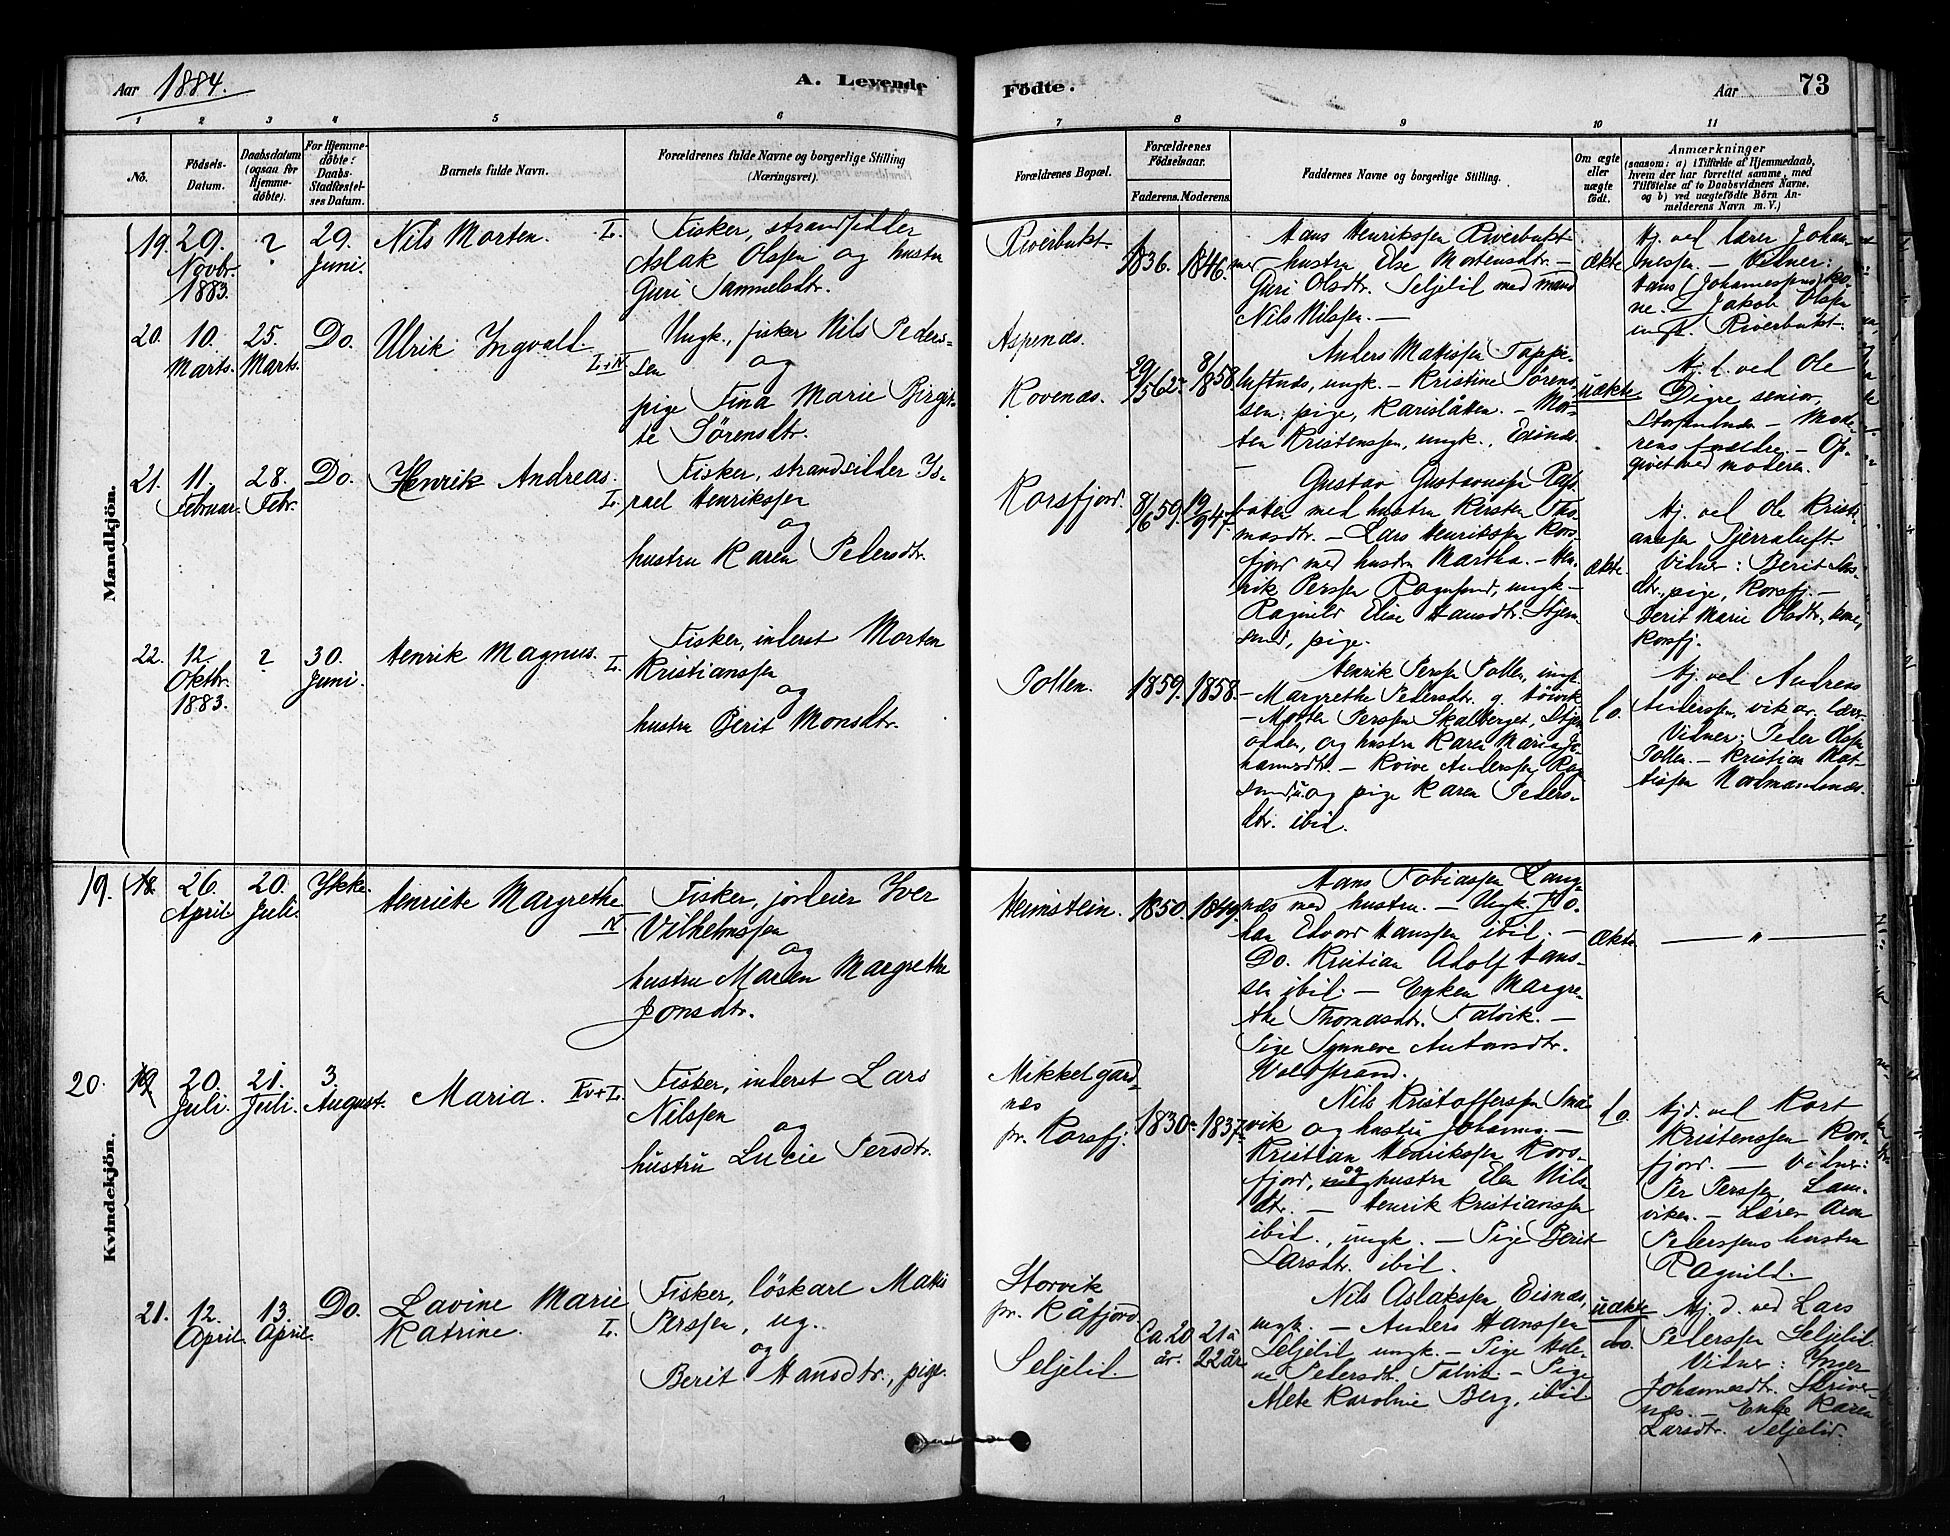 Aar 1884.
A. Levende
Födte.
Aar
73
1 2 3 4 5 6 7 8 9 10 11
No.
Födsels-
Datum.
Daabsdatum
(ogsaa for
Hjemme-
døbte).
For Hjemme-
døbte:
Daabs-
Stadfæstel-
ses Datum.
Barnets fulde Navn.
Forældrenes fulde Navne og borgerlige Stilling
(Næringsvei).
Forældrenes Bopæl.
Forældrenes
Födselsaar.
Faderens. Moderens.
Faddernes Navne og borgerlige Stilling.
Om ægte
eller
uægte
födt.
Anmærkninger
(saasom: a) i Tilfælde af Hjemmedaab,
hvem der har forrettet samme, med
Tilföielse af to Daabsvidners Navne,
og b) ved uægtefödte Börn An-
melderens Navn m. V.)
Mandkjön.
19. 29.
Novbr.
1883.
?
29.
Juni.
Nils Morten. L.
Fisker, strandsidder
Aslak Olssen og hustru
Guri Sammelsdtr.
Riverbukt
1836. 1846.
Hans Henrikssen Riverbukt
med hustru Else Mortensdtr. –
Guri Olsdtr. Seljelid med mand
Nils Nilssen. –
ækte
Hj. ved lærer Johan-
nessen. – Vidner:
Hans Johannessens ko-
ne. – Jakob Olssen
ungk. Riverbukt.
20. 10.
Marts.
25.
Marts.
Do.
Ulrik Ingvald. L+N
Ungk., fisker Nils Peders-
sen og
pige Fina Marie Birgit-
te Sørensdtr.
Aspenæs.
Kovenæs.
29/5 62 8/1858
Anders Matissen Tappe-
luftnæs, ungk. – Kristine Sørens-
sen, pige, Karislåtten. – Mor-
ten Kristenssen, ungk., Eidnæs
–
uækte
Hj. d. ved Ole
Digre senior,
– Mode-
rens forældre. – Op-
givet ved moderen.
21. 11.
Februar.
28.
Febr.
Do.
Henrik Andreas. L.
Fisker, strandsidder Is-
rael Henrikssen
og
hustru Karen Pedersdtr.
Korsfjord.
8/6 59. 19/9 47.
Gustav Gustavussen Rafs-
botn med hustru Kirsten Tho-
masdtr. – Lars Henrikssen Kors-
fjord med hustru Martha. – Hen-
rik Perssen Rognsund, ungk –
Ragnild Elise Hansdtr. Stjern-
sund, pige.
ækte.
Hj. ved Ole Kristi-
anssen Tjerraluft.
Vidner: Berit Lars-
dtr., pige, Korsfj. –
Berit Marie Olsdtr, kone,
Korsfj.
22. 12.
Oktbr.
1883.
?
30.
Juni.
Henrik Magnus. L.
Fisker, inderst Morten
Kristianssen
og
hustru Berit Monsdtr.
Pollen.
1859. 1858.
Henrik Perssen Pollen, ungk.
– Margrethe Pedersdtr. g.
– Morten Perssen Skalberget, Stjern-
odden, og hustru Karen Maria Jo-
hannsdtr. – Kvive Anderssen Rog-
sund, og pige Karen Peders-
dtr. ibid.
Do.
Hj. ved Andreas
Anderssen, vikar. lærer.
Vidner: Peder Olssen
Pollen. – Kristian Mat-
tissen Nordmandsnæs.
Kvindekjön.
19. 18. 26.
April.
20.
Juli.
Ikke.
Henriette Margrethe
N.
Fisker, jordeier Iver
Vilhelmssen
og
hustru Maren Margrethe
Jonsdtr.
Heimstein.
1850. 1849.
Hans Tobiassen Lang-
næs med hustru. – Ungk. Jo-
han Edvard Hanssen ibid. –
Do. Kristian Adolf Hans-
sen ibid. – Enken Margre-
the Thomasdtr. Talvik. –
Pige Synneve Antonsdtr.
Woldstrand.
ækte
— " —
20. 19. 20.
Juli.
21.
Juli.
3.
August.
Maria. Kv+L.
Fisker, inderst Lars
Nilssen
og
hustru Lucie Persdtr.
Mikkelgard-
næs
pr. Korsfj.
1830 1837
Nils Kristofferssen Små-
vik og hustru Johanna. –
Kristian Hedrikssen Kors-
fjord, og hustru Elen Nils-
dtr. – Henrik Kristianssen
ibid., ungk. – Pige Berit
Larsdtr. ibid.
Do.
Hjd. ved Kort
Kristenssen Kors-
fjord. – Vidner:
Per Perssen, Lam-
viken. – Lærer Aron
Pederssens hustru
Ragnild.
21. 12.
April.
13.
April.
Do.
Lavine Marie
Katrine. L.
Fisker, löskarl Matis
Perssen, ug.
og
Berit Hansdtr., pige.
Storvik
pr. Kåfjord
Seljelid.
Ca 20
år.
21 à
22 år
Nils Aslakssen Eidnæs,
ungk. – Anders Hanssen
Seljelid ungk. – Pige Hele-
ne Pedersdtr. Talvik – Pige
Mete Karoline Berg, ibid
uækte
do.
Hj. d. ved Lars
Pederssen Seljelid.
Vidner: Inger
Johannesdtr. Skriver-
næs. – Enke Karen
Larsdtr. Seljelid.